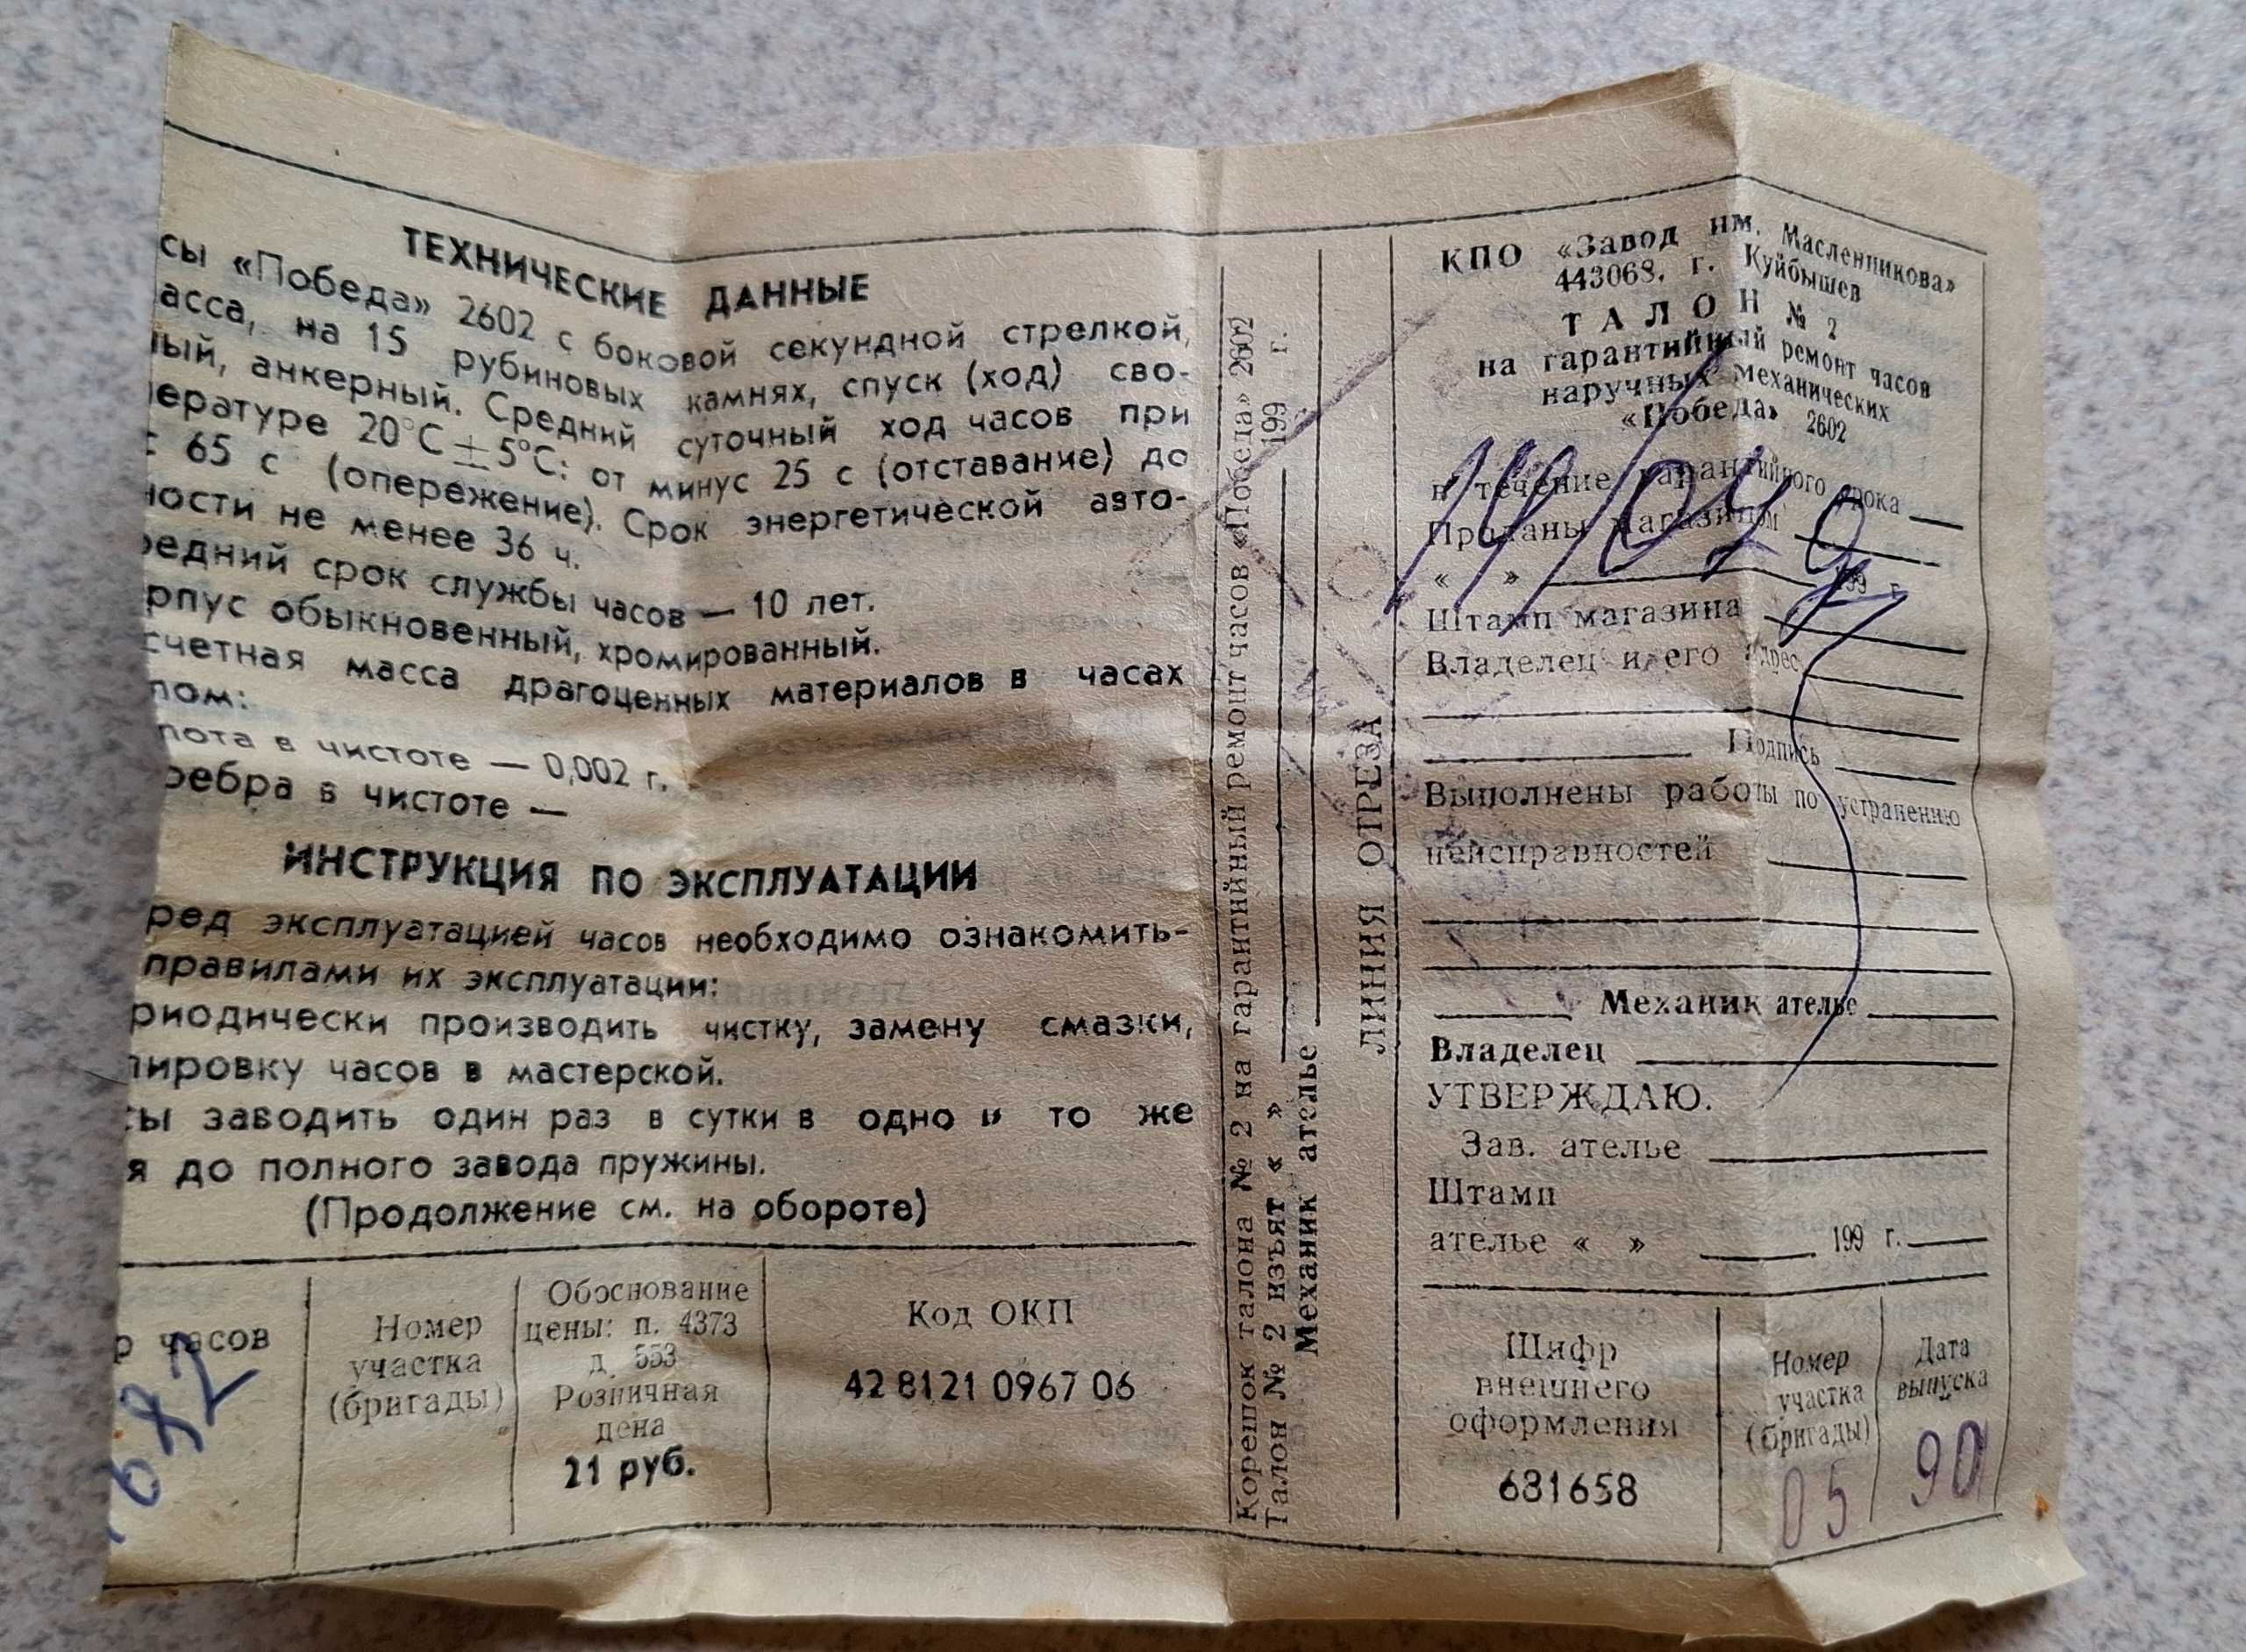 ТЕХНИЧЕСКИЕ ДАННЫЕ
сы «Победа» 2602 с боковой секундной стрелкой,
асса, на 15 рубиновых камнях, спуск (ход) сво-
ный, анкерный. Средний суточный ход часов при
пературе 20°С ± 5°С: от минус 25 с (отставание) до
с 65 с (опережение). Срок энергетической авто-
ности не менее 36 ч.
редний срок службы часов — 10 лет.
рпус обыкновенный, хромированный.
счетная масса драгоценных материалов в часах
лом:
лота в чистоте — 0,002 г.
ребра в чистоте —
ИНСТРУКЦИЯ ПО ЭКСПЛУАТАЦИИ
ред эксплуатацией часов необходимо ознакомить-
правилами их эксплуатации:
риодически производить чистку, замену смазки,
лировку часов в мастерской.
сы заводить один раз в сутки в одно и то же
я до полного завода пружины.
(Продолжение см. на обороте)
р часов
682
Номер
участка
(бригады)
Обоснование
цены: п. 4373
д 553
Розничная
цена
21 руб.
Код ОКП
42 8121 0967 06
Корешок талона № 2 на гарантийный ремонт часов «Победа» 2602
Талон № 2 изъят « » 199 г.
Механик ателье
ЛИНИЯ ОТРЕЗА
КПО «Завод им. Масленникова»
443068, г. Куйбышев
ТАЛОН № 2
на гарантийный ремонт часов
наручных механических
«Победа» 2602
в течение гарантийного срока
Проданы магазином
« » 199 г.
Штамп магазина
Владелец и его адрес
Подпись
Выполнены работы по устранению
неисправностей
Механик ателье
Владелец
УТВЕРЖДАЮ.
Зав. ателье
Штамп
ателье « » 199 г.
Шифр
внешнего
оформления
681658
Номер
участка
(бригады)
05
Дата
выпуска
90